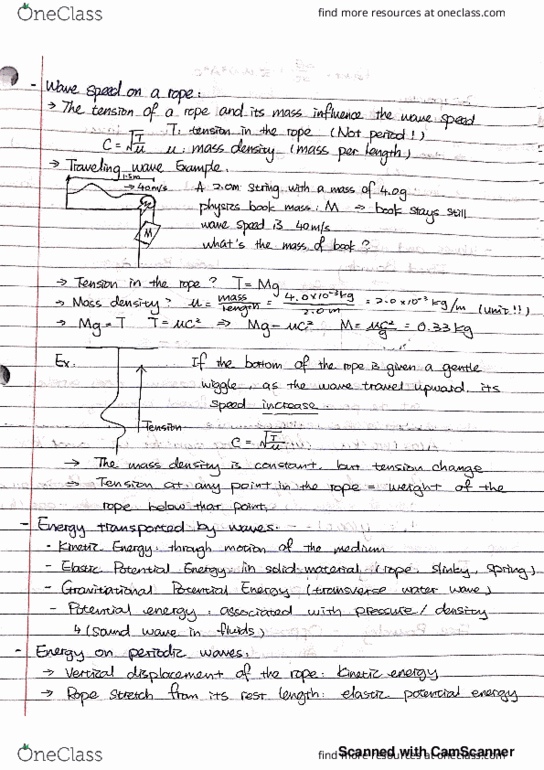 OneClass
find more resources at oneclass.com
- Wave speed on a rope:
→ The tension of a rope and its mass influence the wave speed
C = √T/u T: tension in the rope (Not period!)
u: mass density (mass per length)
→ Traveling wave Example.
1.5m
→ 40m/s
M
A 2.0m string with a mass of 4.0g
physics book mass: M → book stays still
wave speed is 40m/s
what's the mass of book?
→ Tension in the rope? T = Mg
→ Mass density? u = mass/length = 4.0×10⁻³kg/2.0m = 2.0×10⁻³kg/m (unit!!)
→ Mg = T T = uc² ⇒ Mg = uc² M = uc²/g = 0.33kg
Ex.
If the bottom of the rope is given a gentle
wiggle, as the wave travel upward, its
speed increase.
Tension
C = √T/u
→ The mass density is constant, but tension change
→ Tension at any point in the rope = weight of the
rope below that point.
- Energy transported by waves.
- Kinetic Energy: through motion of the medium
- Elastic Potential Energy: in solid material (rope, slinky, spring)
- Gravitiational Potential Energy (transverse water wave)
- Potential energy: associated with pressure/density
↳ (sound wave in fluids)
- Energy on periodic waves.
→ Vertical displacement of the rope: kinetic energy
→ Rope stretch from its rest length: elastic potential energy
OneClass
find more resources at oneclass.com
Scanned with CamScanner